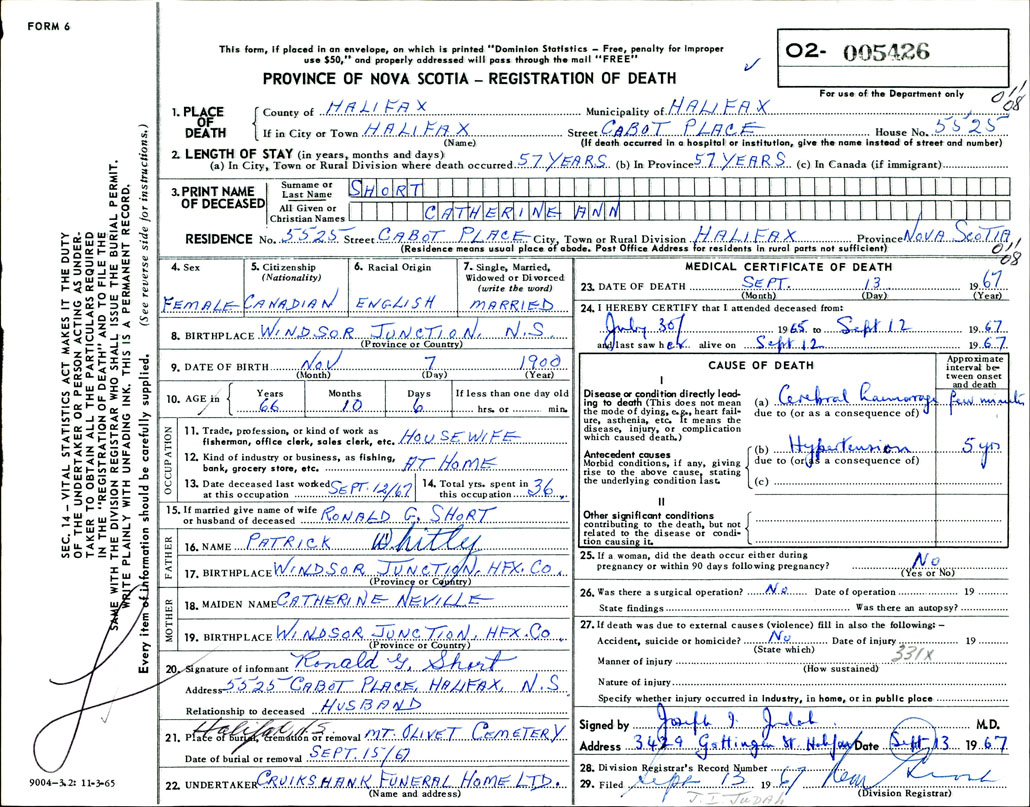 FORM 6
This form, if placed in an envelope, on which is printed "Dominion Statistics – Free, penalty for improper
use $50," and properly addressed will pass through the mail "FREE"
PROVINCE OF NOVA SCOTIA – REGISTRATION OF DEATH
02- 005426
For use of the Department only
1. PLACE OF DEATH
County of HALIFAX Municipality of HALIFAX
If in City or Town HALIFAX Street CABOT PLACE House No. 5525
(Name) (If death occurred in a hospital or institution, give the name instead of street and number)
2. LENGTH OF STAY (in years, months and days)
(a) In City, Town or Rural Division where death occurred 57 YEARS (b) In Province 57 YEARS (c) In Canada (if immigrant)
3. PRINT NAME OF DECEASED
Surname or Last Name SHORT
All Given or Christian Names CATHERINE ANN
RESIDENCE No. 5525 Street CABOT PLACE City, Town or Rural Division HALIFAX Province NOVA SCOTIA
(Residence means usual place of abode. Post Office Address for residents in rural parts not sufficient)
SEC. 14 – VITAL STATISTICS ACT MAKES IT THE DUTY
OF THE UNDERTAKER OR PERSON ACTING AS UNDER-
TAKER TO OBTAIN ALL THE PARTICULARS REQUIRED
IN THE "REGISTRATION OF DEATH" AND TO FILE THE
SAME WITH THE DIVISION REGISTRAR WHO SHALL ISSUE THE BURIAL PERMIT.
WRITE PLAINLY WITH UNFADING INK. THIS IS A PERMANENT RECORD.
Every item of information should be carefully supplied. (See reverse side for instructions.)
4. Sex FEMALE
5. Citizenship (Nationality) CANADIAN
6. Racial Origin ENGLISH
7. Single, Married, Widowed or Divorced (write the word) MARRIED
8. BIRTHPLACE WINDSOR JUNCTION, N.S.
(Province or Country)
9. DATE OF BIRTH NOV 7 1900
(Month) (Day) (Year)
10. AGE in Years 66 Months 10 Days 6 If less than one day old hrs. or min.
OCCUPATION
11. Trade, profession, or kind of work as
fisherman, office clerk, sales clerk, etc. HOUSEWIFE
12. Kind of industry or business, as fishing,
bank, grocery store, etc. AT HOME
13. Date deceased last worked at this occupation SEPT. 12/67
14. Total yrs. spent in this occupation 36
15. If married give name of wife or husband of deceased RONALD G. SHORT
FATHER
16. NAME PATRICK Whitly
17. BIRTHPLACE WINDSOR JUNCTION, HFX. CO.
(Province or Country)
MOTHER
18. MAIDEN NAME CATHERINE NEVILLE
19. BIRTHPLACE WINDSOR JUNCTION, HFX. CO.
(Province or Country)
20. Signature of informant Ronald G. Short
Address 5525 CABOT PLACE, HALIFAX, N.S.
Relationship to deceased HUSBAND
Halifax N.S.
21. Place of burial, cremation or removal MT. OLIVET CEMETERY
Date of burial or removal SEPT. 15/67
22. UNDERTAKER CRUIKSHANK FUNERAL HOME LTD.
(Name and address)
9004-3.2: 11-3-65
MEDICAL CERTIFICATE OF DEATH
23. DATE OF DEATH SEPT. 13 1967
(Month) (Day) (Year)
24. I HEREBY CERTIFY that I attended deceased from:
July 30/ 1965 to Sept 12 1967
and last saw her alive on Sept 12 1967
CAUSE OF DEATH
Approximate interval be-
tween onset and death
I
Disease or condition directly lead-
ing to death (This does not mean
the mode of dying, e.g., heart fail-
ure, asthenia, etc. It means the
disease, injury, or complication
which caused death.)
(a) Cerebral haemorrage few minutes
due to (or as a consequence of)
Antecedent causes
Morbid conditions, if any, giving
rise to the above cause, stating
the underlying condition last.
(b) Hypertension 5 yrs
due to (or as a consequence of)
(c)
II
Other significant conditions
contributing to the death, but not
related to the disease or condi-
tion causing it.
25. If a woman, did the death occur either during
pregnancy or within 90 days following pregnancy? No
(Yes or No)
26. Was there a surgical operation? No Date of operation 19
State findings Was there an autopsy?
27. If death was due to external causes (violence) fill in also the following: –
Accident, suicide or homicide? No Date of injury 19
(State which)
331X
Manner of injury
(How sustained)
Nature of injury
Specify whether injury occurred in industry, in home, or in public place
Signed by Joseph I. Judah M.D.
Address 3429 Gottingen St. Halifax Date Sept 13 1967
28. Division Registrar's Record Number
29. Filed Sept 13 1967
(Division Registrar)
J. I. JUDAH